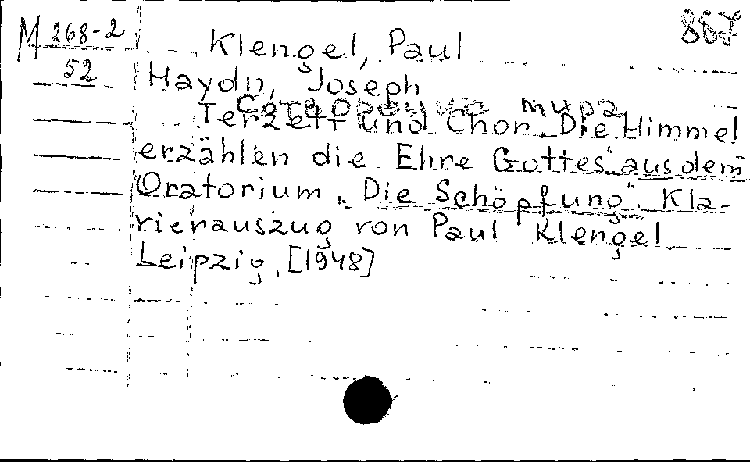 M 268-2
52
887
Klengel, Paul
Haydn, Joseph
Сотворение мира
Terzett und Chor „Die Himmel
erzählen die Ehre Gottes" aus dem
Oratorium „Die Schöpfung". Kla-
vierauszug von Paul Klengel
Leipzig, [1948]